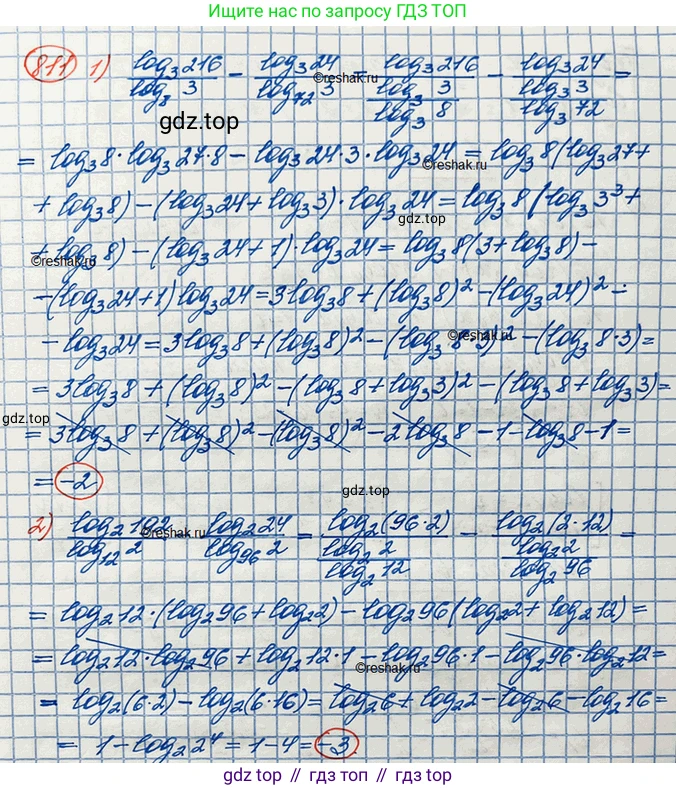 Ищите нас по запросу ГДЗ ТОП
811 1) log₃216/log₈3 − log₃24/log₇₂3 = log₃216/(log₃3/log₃8) − log₃24/(log₃3/log₃72) =
©reshak.ru
gdz.top
= log₃8·log₃27·8 − log₃24·3·log₃24 = log₃8(log₃27+
©reshak.ru
+ log₃8) − (log₃24 + log₃3)·log₃24 = log₃8(log₃3³+
gdz.top
+ log₃8) − (log₃24 + 1)·log₃24 = log₃8(3 + log₃8) −
©reshak.ru
− (log₃24 + 1)log₃24 = 3log₃8 + (log₃8)² − (log₃24)² −
− log₃24 = 3log₃8 + (log₃8)² − (log₃8·3)² − (log₃8·3) =
©reshak.ru
= 3log₃8 + (log₃8)² − (log₃8 + log₃3)² − (log₃8 + log₃3) =
gdz.top
= 3log₃8 + (log₃8)² − (log₃8)² − 2log₃8 − 1 − log₃8 − 1 =
= −2
gdz.top
2) log₂192/log₁₂2 − log₂24/log₉₆2 = log₂(96·2)/(log₂2/log₂12) − log₂(2·12)/(log₂2/log₂96) =
©reshak.ru
= log₂12·(log₂96 + log₂2) − log₂96(log₂2 + log₂12) =
= log₂12·log₂96 + log₂12·1 − log₂96·1 − log₂96·log₂12 =
©reshak.ru
= log₂(6·2) − log₂(6·16) = log₂6 + log₂2 − log₂6 − log₂16 =
= 1 − log₂2⁴ = 1 − 4 = −3
gdz.top // гдз.топ // gdz.top